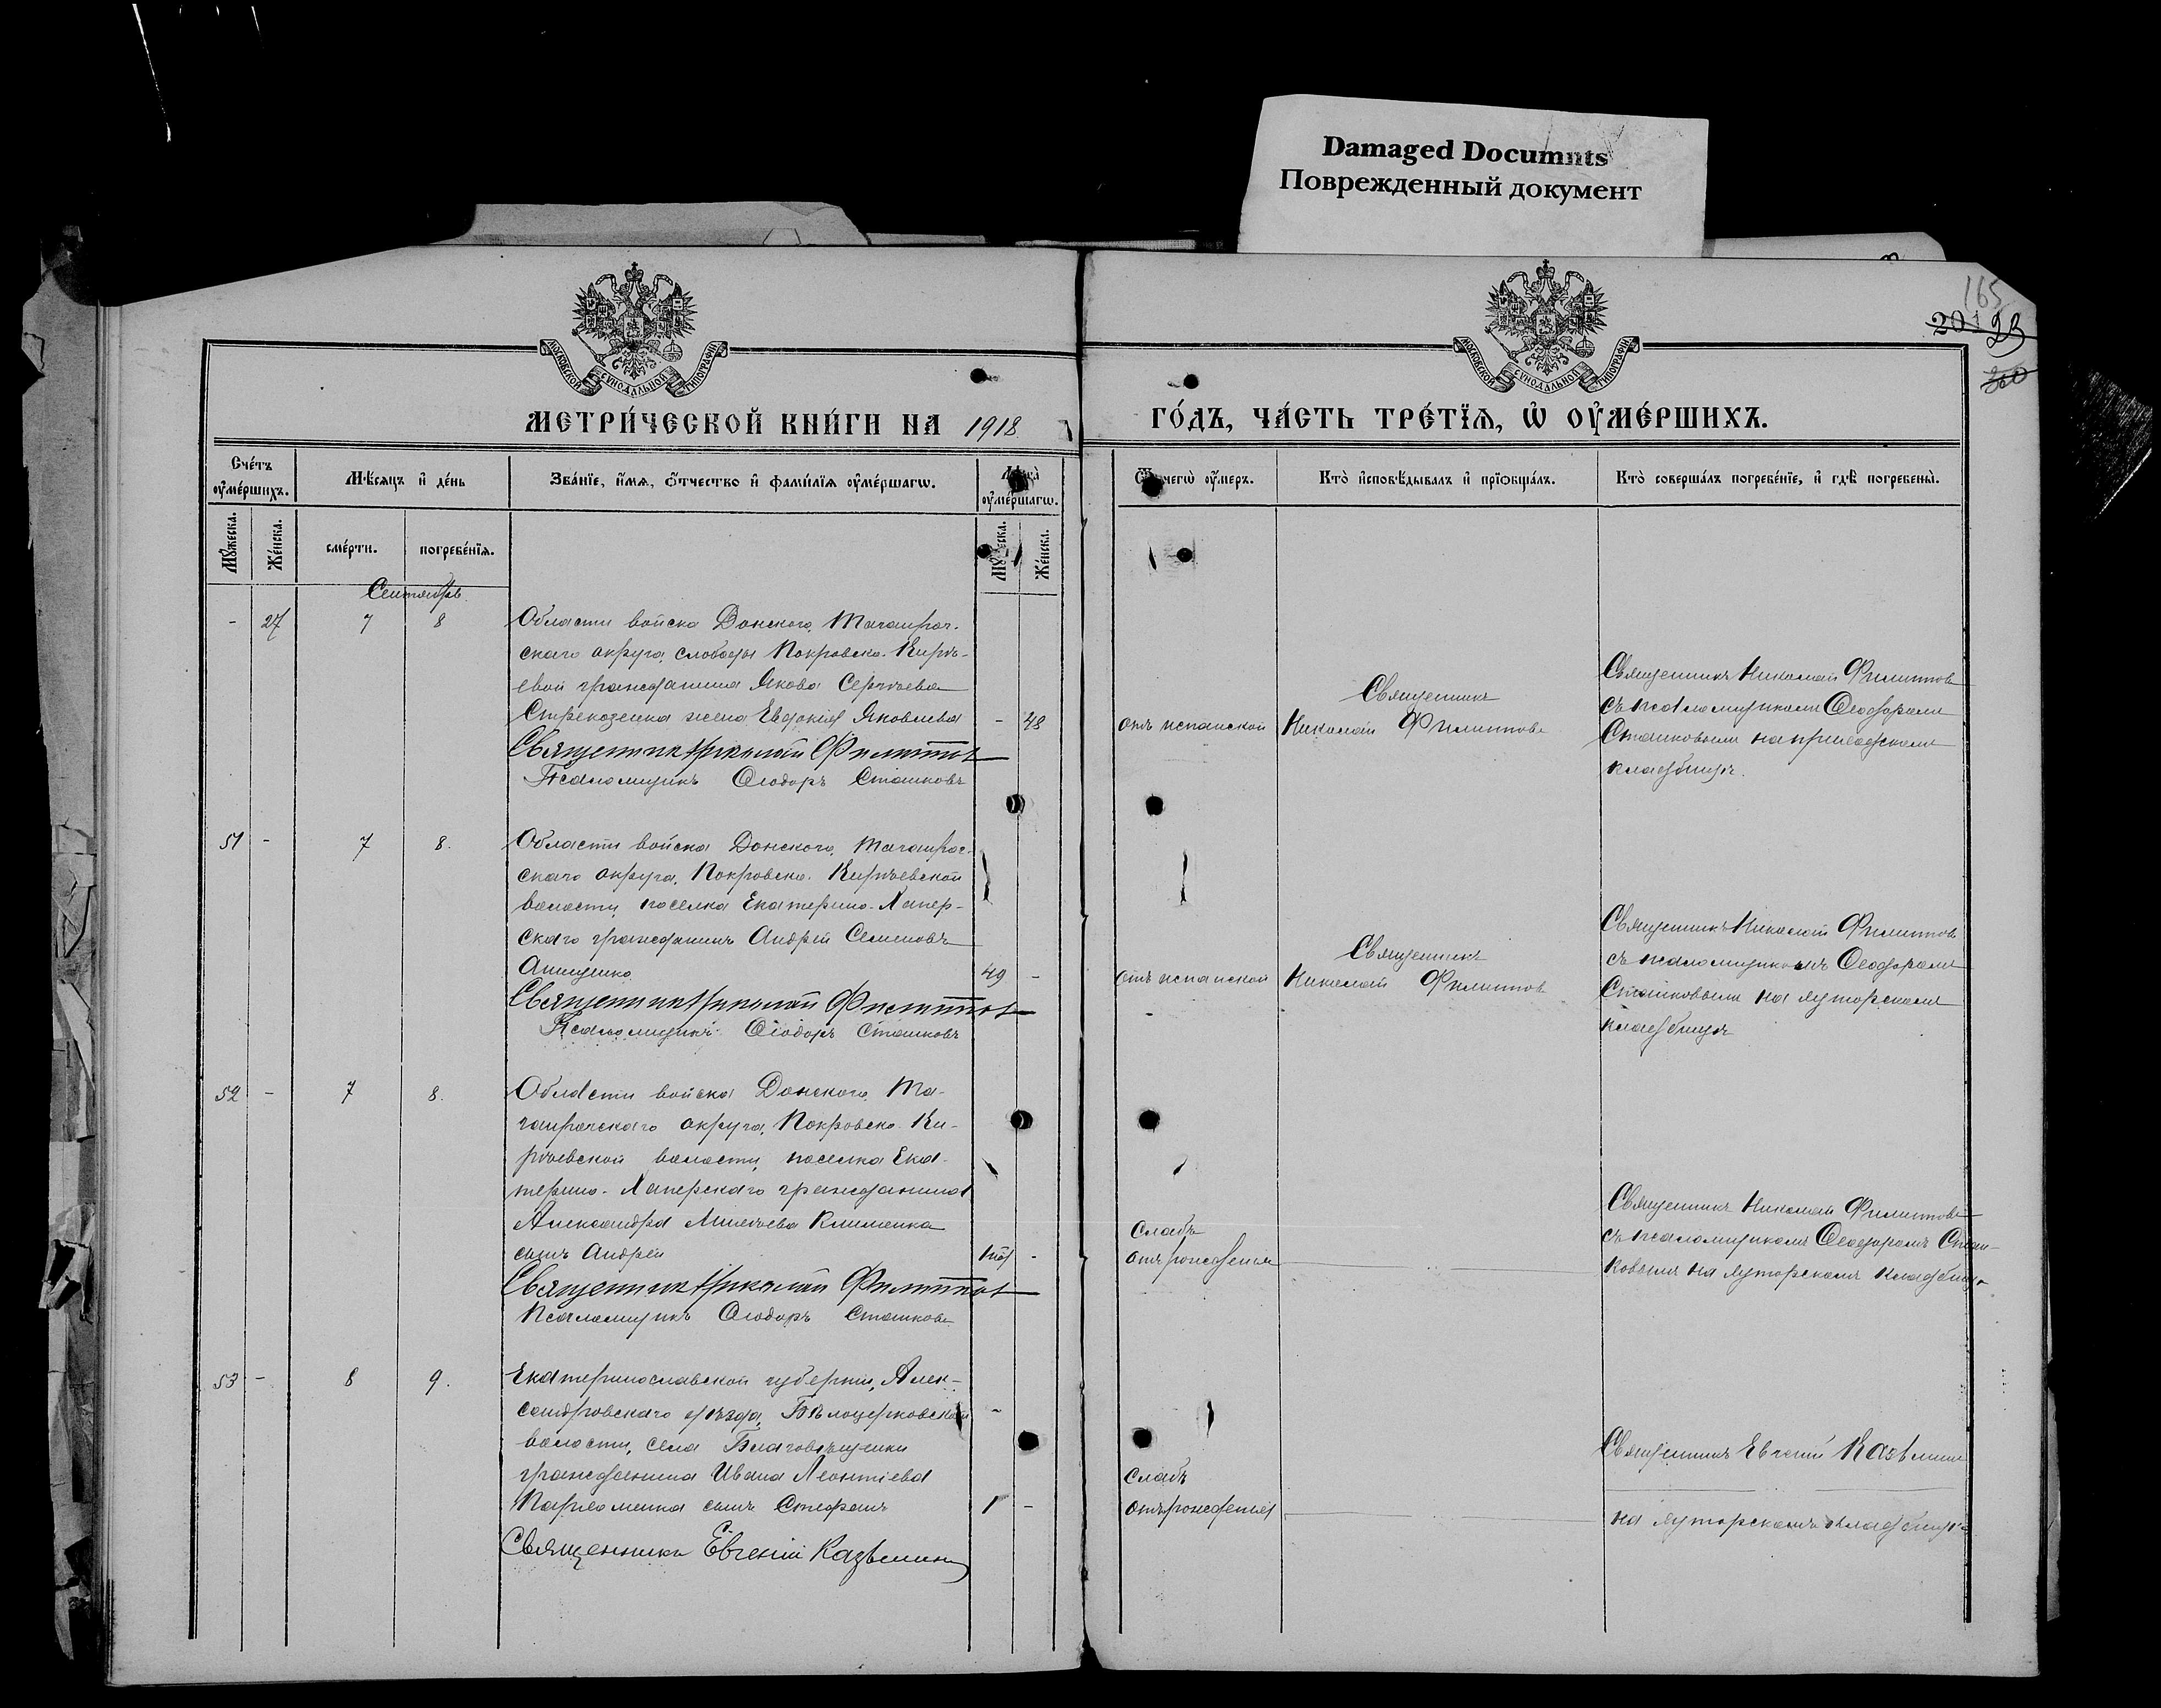 Damaged Documnts
Поврежденный документ
165
20 23
300
МОСКОВСКОЙ СѴНОДАЛЬНОЙ ТИПОГРАФІИ
МОСКОВСКОЙ СѴНОДАЛЬНОЙ ТИПОГРАФІИ
МЕТРИ́ЧЕСКОЙ КНИ́ГИ НА 1918
ГО́ДЪ, ЧА́СТЬ ТРЕ́ТЇѦ, Ѡ҆ ОУ҆МЕ́РШИХЪ.
Сче́тъ оу҆ме́ршихъ.
Мѣ́сѧцъ и҆ де́нь
Зва́нїе, и҆́мѧ, ѻ҆́тчество и҆ фами́лїѧ оу҆ме́ршагѡ.
оу҆ме́ршагѡ.
чегѡ̀ оу҆́меръ.
Кто̀ и҆сповѣ́дывалъ и҆ прїѡбща́лъ.
Кто̀ соверша́лъ погребе́нїе, и҆ гдѣ̀ погребены̀.
Мꙋ́жеска.
Же́нска.
сме́рти.
погребе́нїѧ.
Же́нска.
Сентябрь
- 27 7 8 Области войска Донского, Таганрог-
скаго округа, слободы Покровско-Кирѣ-
евой гражданина Якова Сергѣева
Стрекозенка жена Евдокія Яковлева - 48
Священникъ Николай Филиппов
Псаломщикъ Ѳеодоръ Сташковъ
отъ испанской
Священникъ
Николай Филиппов
Священникъ Николай Филиппов
съ псаломщикомъ Ѳеодоромъ
Сташковымъ на приходскомъ
кладбищѣ.
51 - 7 8. Области войска Донского, Таганрог-
скаго округа, Покровско-Кирѣевской
волости, поселка Екатерино-Хапер-
скаго гражданинъ Андрей Семеновъ
Анищенко 49 -
Священникъ Николай Филиппов
Псаломщикъ Ѳеодоръ Сташковъ
отъ испанской
Священникъ
Николай Филиппов
Священникъ Николай Филиппов
съ псаломщикомъ Ѳеодоромъ
Сташковымъ на хуторскомъ
кладбищѣ
52 - 7 8. Области войска Донского, Та-
ганрогскаго округа, Покровско-Ки-
рѣевской волости, поселка Ека-
терино-Хаперскаго гражданина
Александра Михеева Клименка
сынъ Андрей -
Священникъ Николай Филиппов
Псаломщикъ Ѳеодоръ Сташков
Слабъ
отъ рожденья
Священникъ Николай Филиппов
съ псаломщикомъ Ѳеодоромъ Сташ-
ковымъ на хуторскомъ кладбищѣ
53 - 8 9. Екатеринославской губерніи, Алек-
сандровскаго уѣзда, Бѣлоцерковской
волости, села Благовѣщенки
гражданина Ивана Леонтіева
Пархоменка сынъ Стефанъ 1 -
Священникъ Евгеній
Слабъ
отъ рожденья
Священникъ Евгеній
на хуторскомъ кладбищѣ